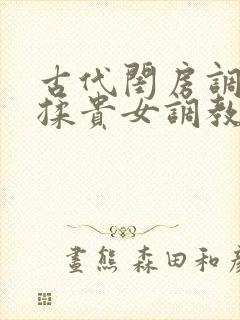 古代閨房調
揉貴女調教
畫熊 森田和彥